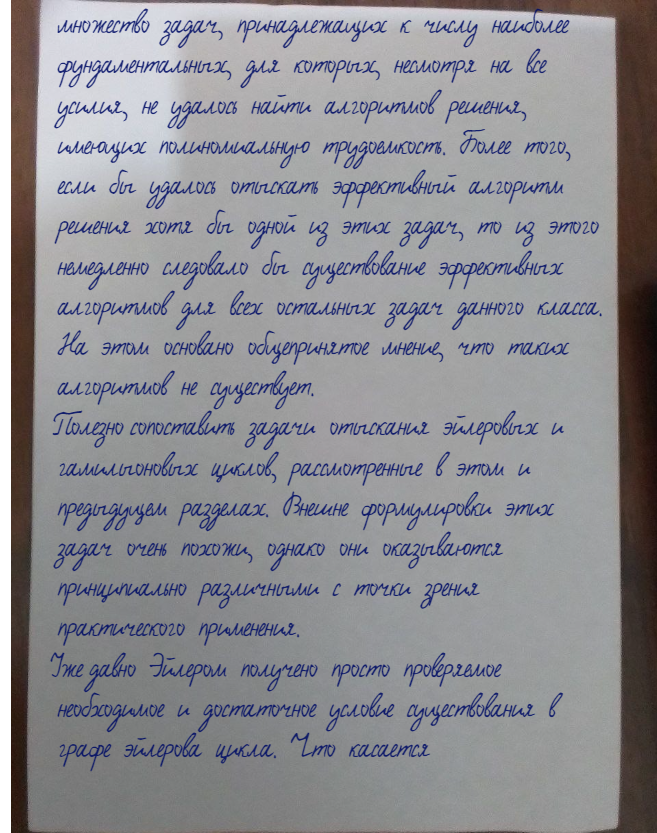 множество задач, принадлежащих к числу наиболее
фундаментальных, для которых, несмотря на все
усилия, не удалось найти алгоритмов решения,
имеющих полиномиальную трудоемкость. Более того,
если бы удалось отыскать эффективный алгоритм
решения хотя бы одной из этих задач, то из этого
немедленно следовало бы существование эффективных
алгоритмов для всех остальных задач данного класса.
На этом основано общепринятое мнение, что таких
алгоритмов не существует.
Полезно сопоставить задачи отыскания эйлеровых и
гамильтоновых циклов, рассмотренные в этом и
предыдущем разделах. Внешне формулировки этих
задач очень похожи, однако они оказываются
принципиально различными с точки зрения
практического применения.
Уже давно Эйлером получено просто проверяемое
необходимое и достаточное условие существования в
графе эйлерова цикла. Что касается